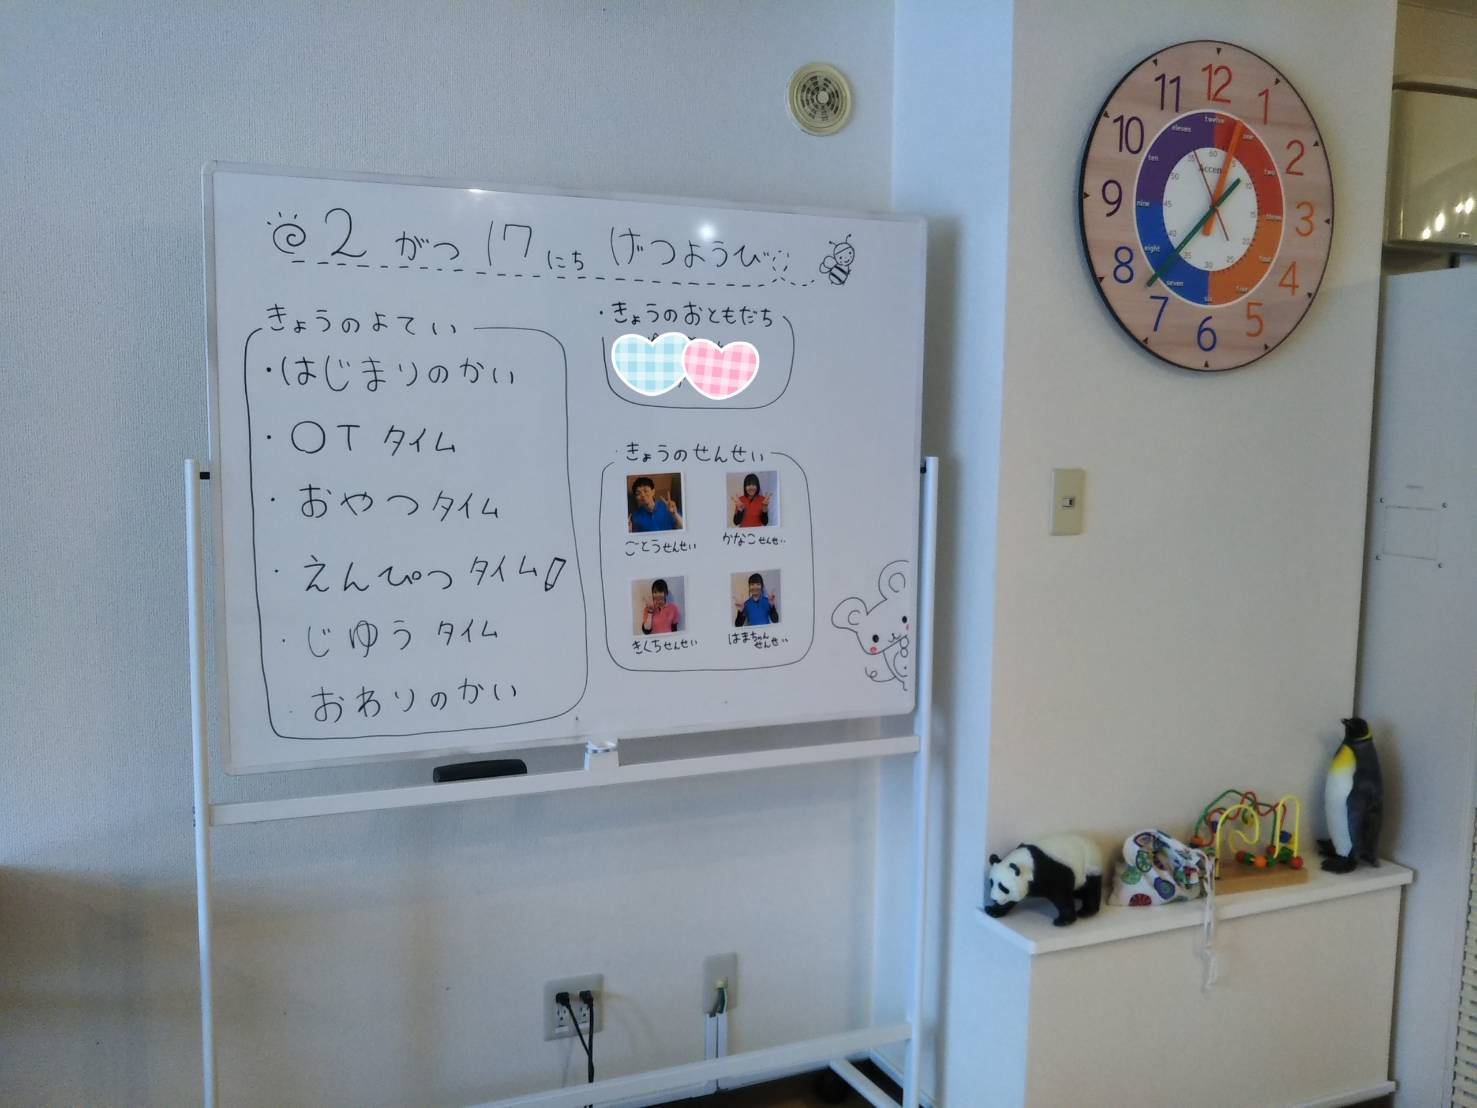 2がつ17にち げつようび
きょうのよてい
・はじまりのかい
・OTタイム
・おやつタイム
・えんぴつタイム
・じゆうタイム
・おわりのかい
・きょうのおともだち
・きょうのせんせい
ごとうせんせい
かなこせんせい
きくちせんせい
はまちゃん
せんせい
12
1
2
3
4
5
6
7
8
9
10
11
twelve
one
two
three
four
five
six
seven
eight
nine
ten
eleven
60
10
30
35
40
45
50
55